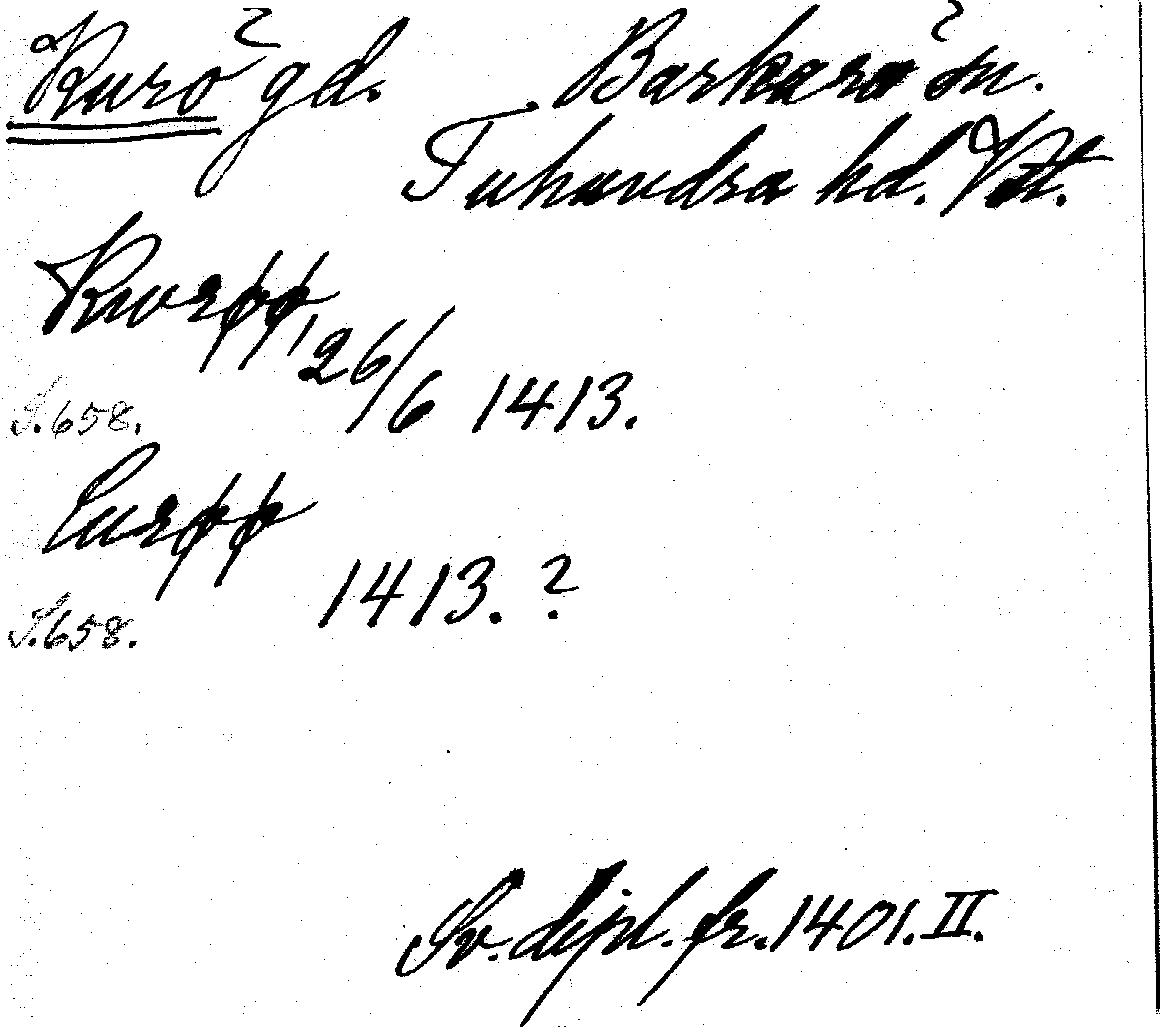 Kurö gd. Barkarö sn.
Tuhundra hd. Vstl.
Kworøø, 26/6 1413.
S.658.
Curøø 1413.?
S.658.
Sv. dipl. fr. 1401. II.